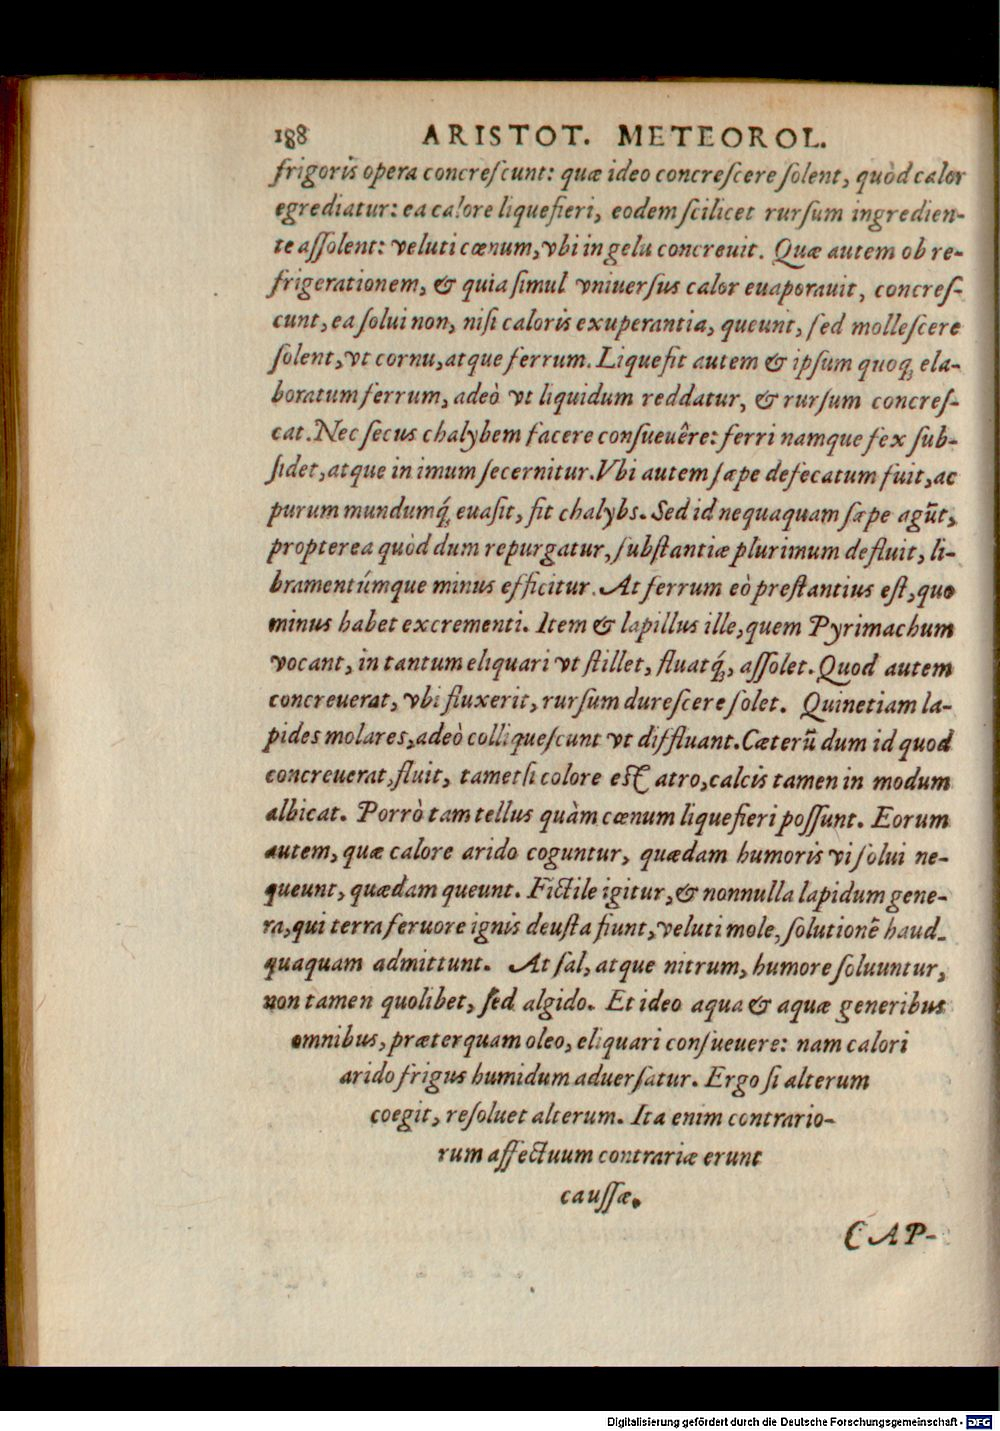 188 ARISTOT. METEOROL.
frigoris opera concreſcunt: quæ ideo concreſcere ſolent, quòd calor
egrediatur: ea calore liquefieri, eodem ſcilicet rurſum ingredien-
te aſſolent: veluti cœnum, vbi in gelu concreuit. Quæ autem ob re-
frigerationem, & quia ſimul vniuerſus calor euaporauit, concreſ-
cunt, ea ſolui non, niſi caloris exuperantia, queunt, ſed molleſcere
ſolent, vt cornu, atque ferrum. Liquefit autem & ipſum quoq; ela-
boratum ferrum, adeò vt liquidum reddatur, & rurſum concreſ-
cat. Nec ſecus chalybem facere conſueuêre: ferri namque fex ſub-
ſidet, atque in imum ſecernitur. Vbi autem ſæpe defecatum fuit, ac
purum mundumq́; euaſit, fit chalybs. Sed id nequaquam ſæpe agūt,
propterea quòd dum repurgatur, ſubſtantiæ plurimum defluit, li-
bramentúmque minus efficitur. At ferrum eò preſtantius eſt, quo
minus habet excrementi. Item & lapillus ille, quem Pyrimachum
vocant, in tantum eliquari vt ſtillet, fluatq́;, aſſolet. Quod autem
concreuerat, vbi fluxerit, rurſum dureſcere ſolet. Quinetiam la-
pides molares, adeò colliqueſcunt vt diffluant. Cæterū dum id quod
concreuerat, fluit, tametſi colore eſt atro, calcis tamen in modum
albicat. Porrò tam tellus quàm cœnum liquefieri poſſunt. Eorum
autem, quæ calore arido coguntur, quædam humoris vi ſolui ne-
queunt, quædam queunt. Fictile igitur, & nonnulla lapidum gene-
ra, qui terra feruore ignis deuſta fiunt, veluti mole, ſolutionē haud-
quaquam admittunt. At ſal, atque nitrum, humore ſoluuntur,
non tamen quolibet, ſed algido. Et ideo aqua & aquæ generibus
omnibus, præterquam oleo, eliquari conſueuere: nam calori
arido frigus humidum aduerſatur. Ergo ſi alterum
coegit, reſoluet alterum. Ita enim contrario-
rum affectuum contrariæ erunt
cauſſæ.
CAP-
Digitalisierung gefördert durch die Deutsche Forschungsgemeinschaft - DFG